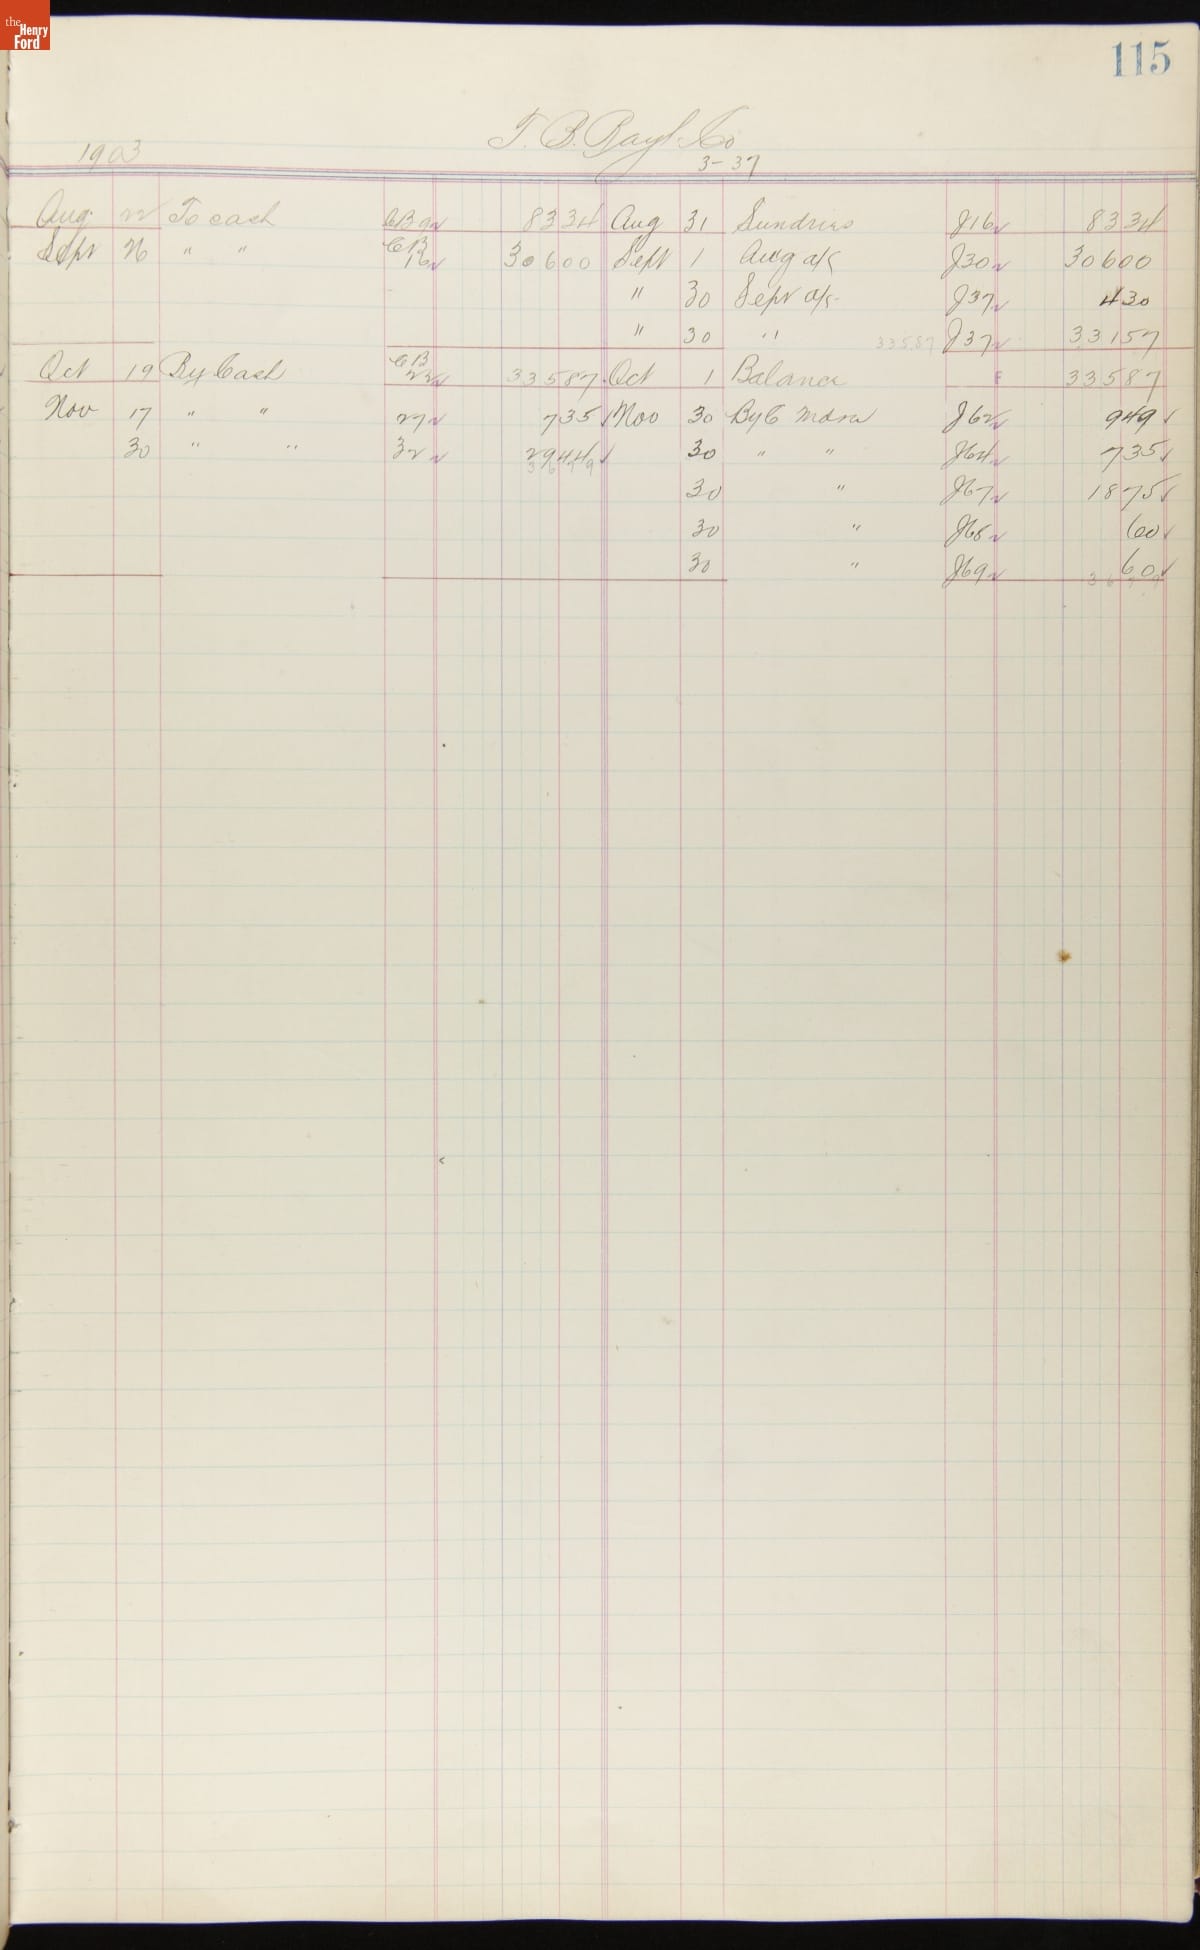 the Henry Ford
115
T. B. Rayl Co
1903
3-37
Aug. 22 To cash CB 9 83 34 Aug 31 Sundries J16 83 34
Sept 26 " " CB 16 306 00 Sept 1 Aug a/c J30 306 00
" 30 Sept a/c J37 4 30
" 30 " 335.87 J37 331 57
Oct 19 By Cash CB 22 335 87 Oct 1 Balance 335 87
Nov 17 " " 27 7 35 Nov 30 By C Mdse J62 9 49
30 " " 32 29 44 30 " " J64 7 35
36 79
30 " J67 18 75
30 " J68 60
30 " J69 60
36 79